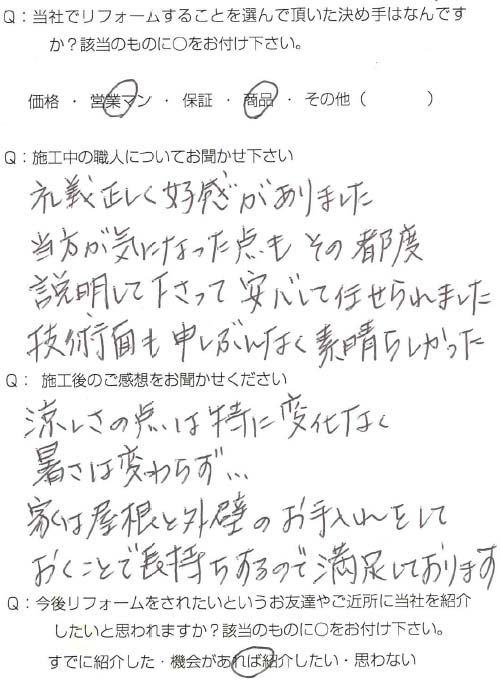 Q：当社でリフォームすることを選んで頂いた決め手はなんです
か？該当のものに〇をお付け下さい。
価格 ・ 営業マン ・ 保証 ・ 商品 ・ その他（　　　　）
Q：施工中の職人についてお聞かせ下さい
礼義正しく好感がありました
当方が気になった点も その都度
説明して下さって 安心して任せられました
技術面も申しぶんなく素晴らしかった
Q： 施工後のご感想をお聞かせください
涼しさの点は特に変化なく
暑さは変わらず...
家は屋根と外壁のお手入れをして
おくことで長持ちするので満足しております
Q：今後リフォームをされたいというお友達やご近所に当社を紹介
したいと思われますか？該当のものに〇をお付け下さい。
すでに紹介した・機会があれば紹介したい・思わない